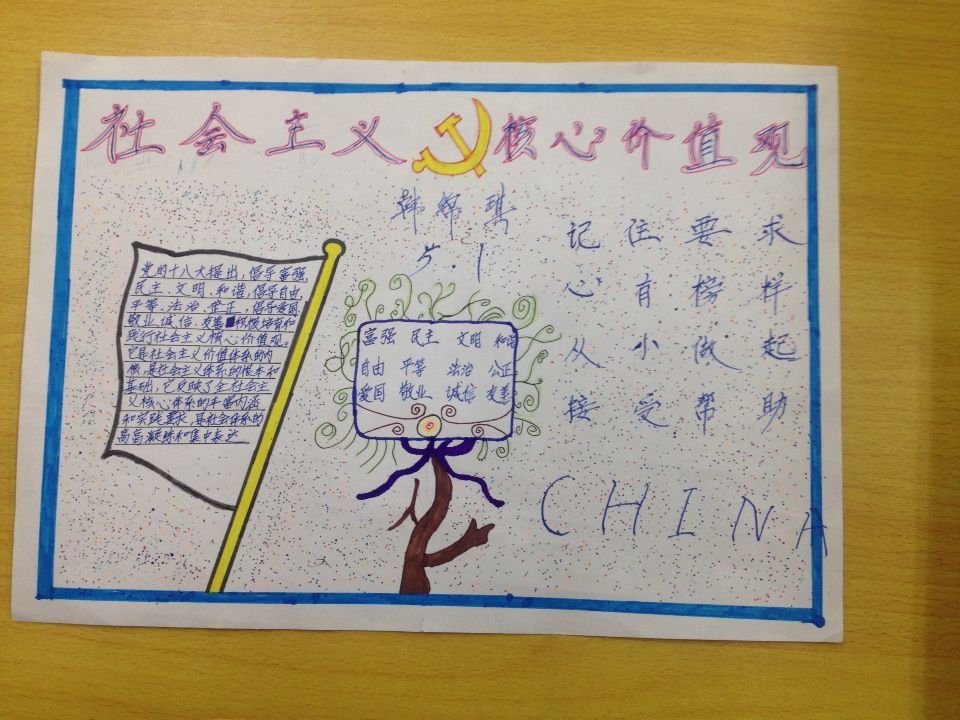 社会主义核心价值观
韩绵琪
5.1
党的十八大提出，倡导富强、
民主、文明、和谐，倡导自由、
平等、法治、公正，倡导爱国、
敬业、诚信、友善，积极培育和
践行社会主义核心价值观。
它是社会主义价值体系的内
核，是社会主义体系的根本和
基础，它反映了全社会主
义核心体系的丰富内涵
和实践要求，是社会体系的
高高凝练和集中表达
富强 民主 文明 和谐
自由 平等 法治 公正
爱国 敬业 诚信 友善
记住要求
心有榜样
从小做起
接受帮助
CHINA